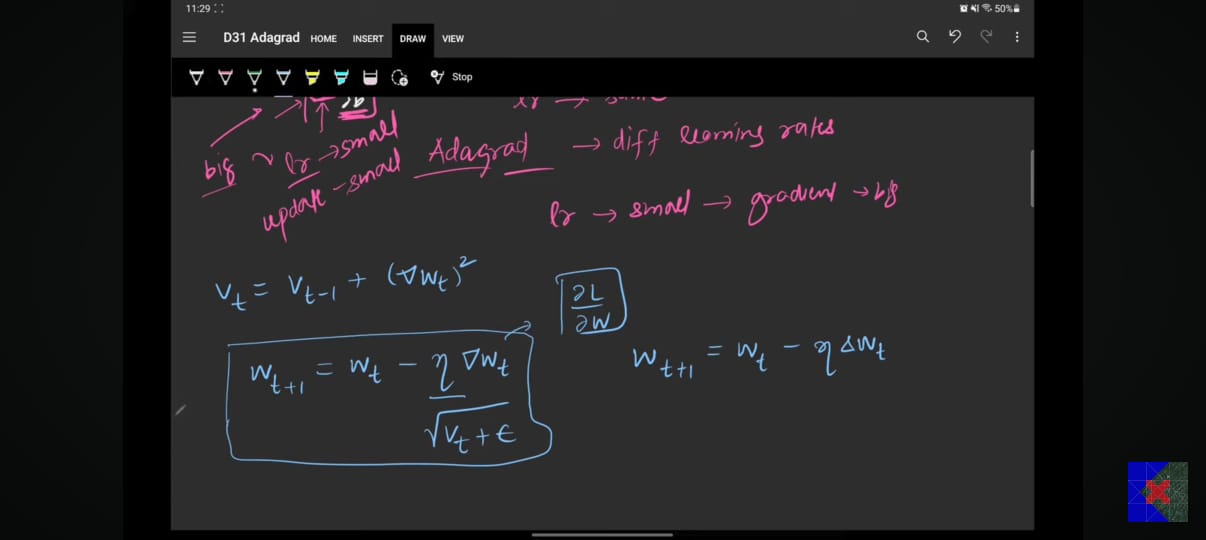 11:29 50%
D31 Adagrad HOME INSERT DRAW VIEW
Stop
lr →
big ~ lr → small
update - small
Adagrad → diff learning rates
lr → small → gradient → big
v_t = v_{t-1} + (∇w_t)^2
∂L/∂w
w_{t+1} = w_t - η ∇w_t / √(v_t + ϵ)
w_{t+1} = w_t - η Δw_t